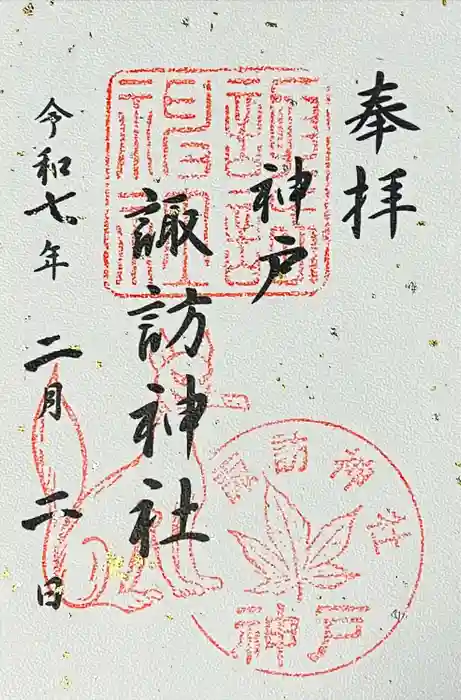 奉拝
神戸
諏訪神社
令和七年
二月
二日
諏訪神社
神戸